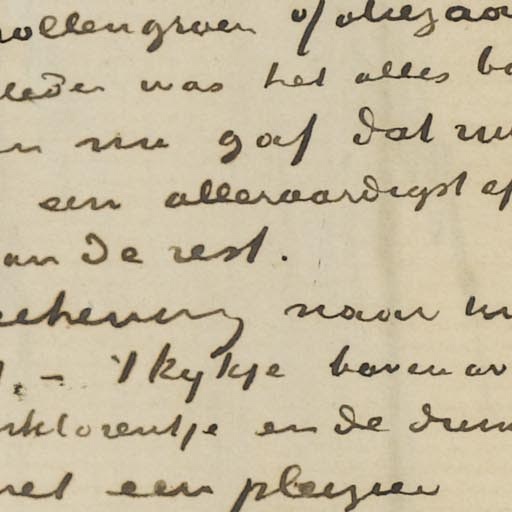 ollengroen of oliezaa
leden was het alles b
n nu gaf dat
een alleraardigst ef
an de rest.
naar
– 't kykje boven
rklorentje en de
een pleyzier